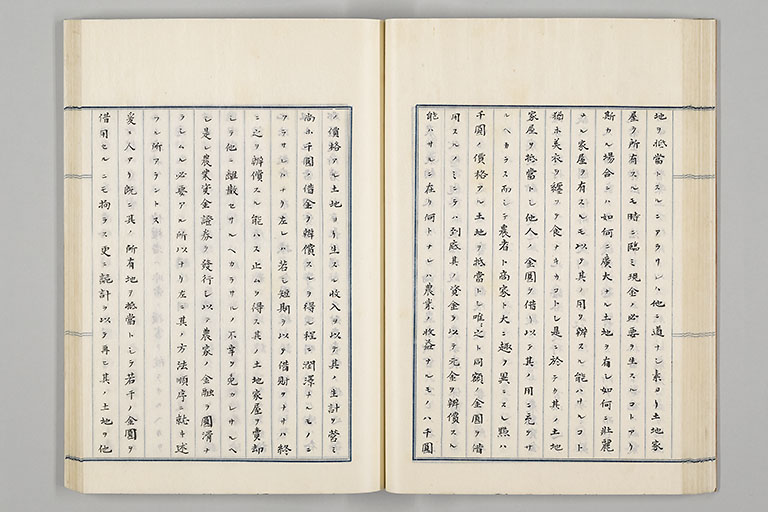 地ヲ抵當トスルニアラサレハ他ニ道ナシ素ヨリ土地家
屋ヲ所有スルモ時ニ臨ミ現金ノ必要ヲ生スルコトアリ
斯カル場合ニハ如何ニ廣大ナル土地ヲ有シ如何ニ壯麗
ナル家屋ヲ有スルモ以テ其ノ用ヲ辨スル能ハサルコト
猶ホ美衣ヲ纒フテ食ナキカコトシ是ニ於テカ其ノ土地
家屋ヲ抵當トシ他人ノ金圓ヲ借リ以テ其ノ用ニ充テサ
ルヘカラス而シテ農者ト商家ト大ニ趣ヲ異ニスル㸃ハ
千圓ノ價格アル土地ヲ抵當トシ唯之ト同額ノ金圓ヲ借
用スルノミニテハ到底其ノ資金ヲ以テ元金ヲ辨償スル
能ハサルニ在リ何トナレハ農業ノ收益ナルモノハ千圓
ノ價格アル土地ヨリ生スル收入ヲ以テ其ノ生計ヲ營ミ
尚ホ千圓ノ借金ヲ辨償スルヲ得ル程ニ潤澤ナルモノニ
アラサレハナリ左レハ若シ短期ヲ以テ借財ヲナサハ終
ニ之ヲ辨償スル能ハス止ムヲ得ス其ノ土地家屋ヲ賣却
シテ他ニ離散セサルヘカラサルノ不幸ヲ免カレサルヘ
シ是レ農業資金證券ヲ發行シ以テ農家ノ金融ヲ圓滑ナ
ラシムル必要アル所以ナリ左ニ其ノ方法順序ニ就キ述
フル所アラントス
爰ニ人アリ既ニ其ノ所有地ヲ抵當トシテ若干ノ金圓ヲ
借用セルニモ拘ラス更ニ詭計ヲ以テ再ヒ其ノ土地ヲ他